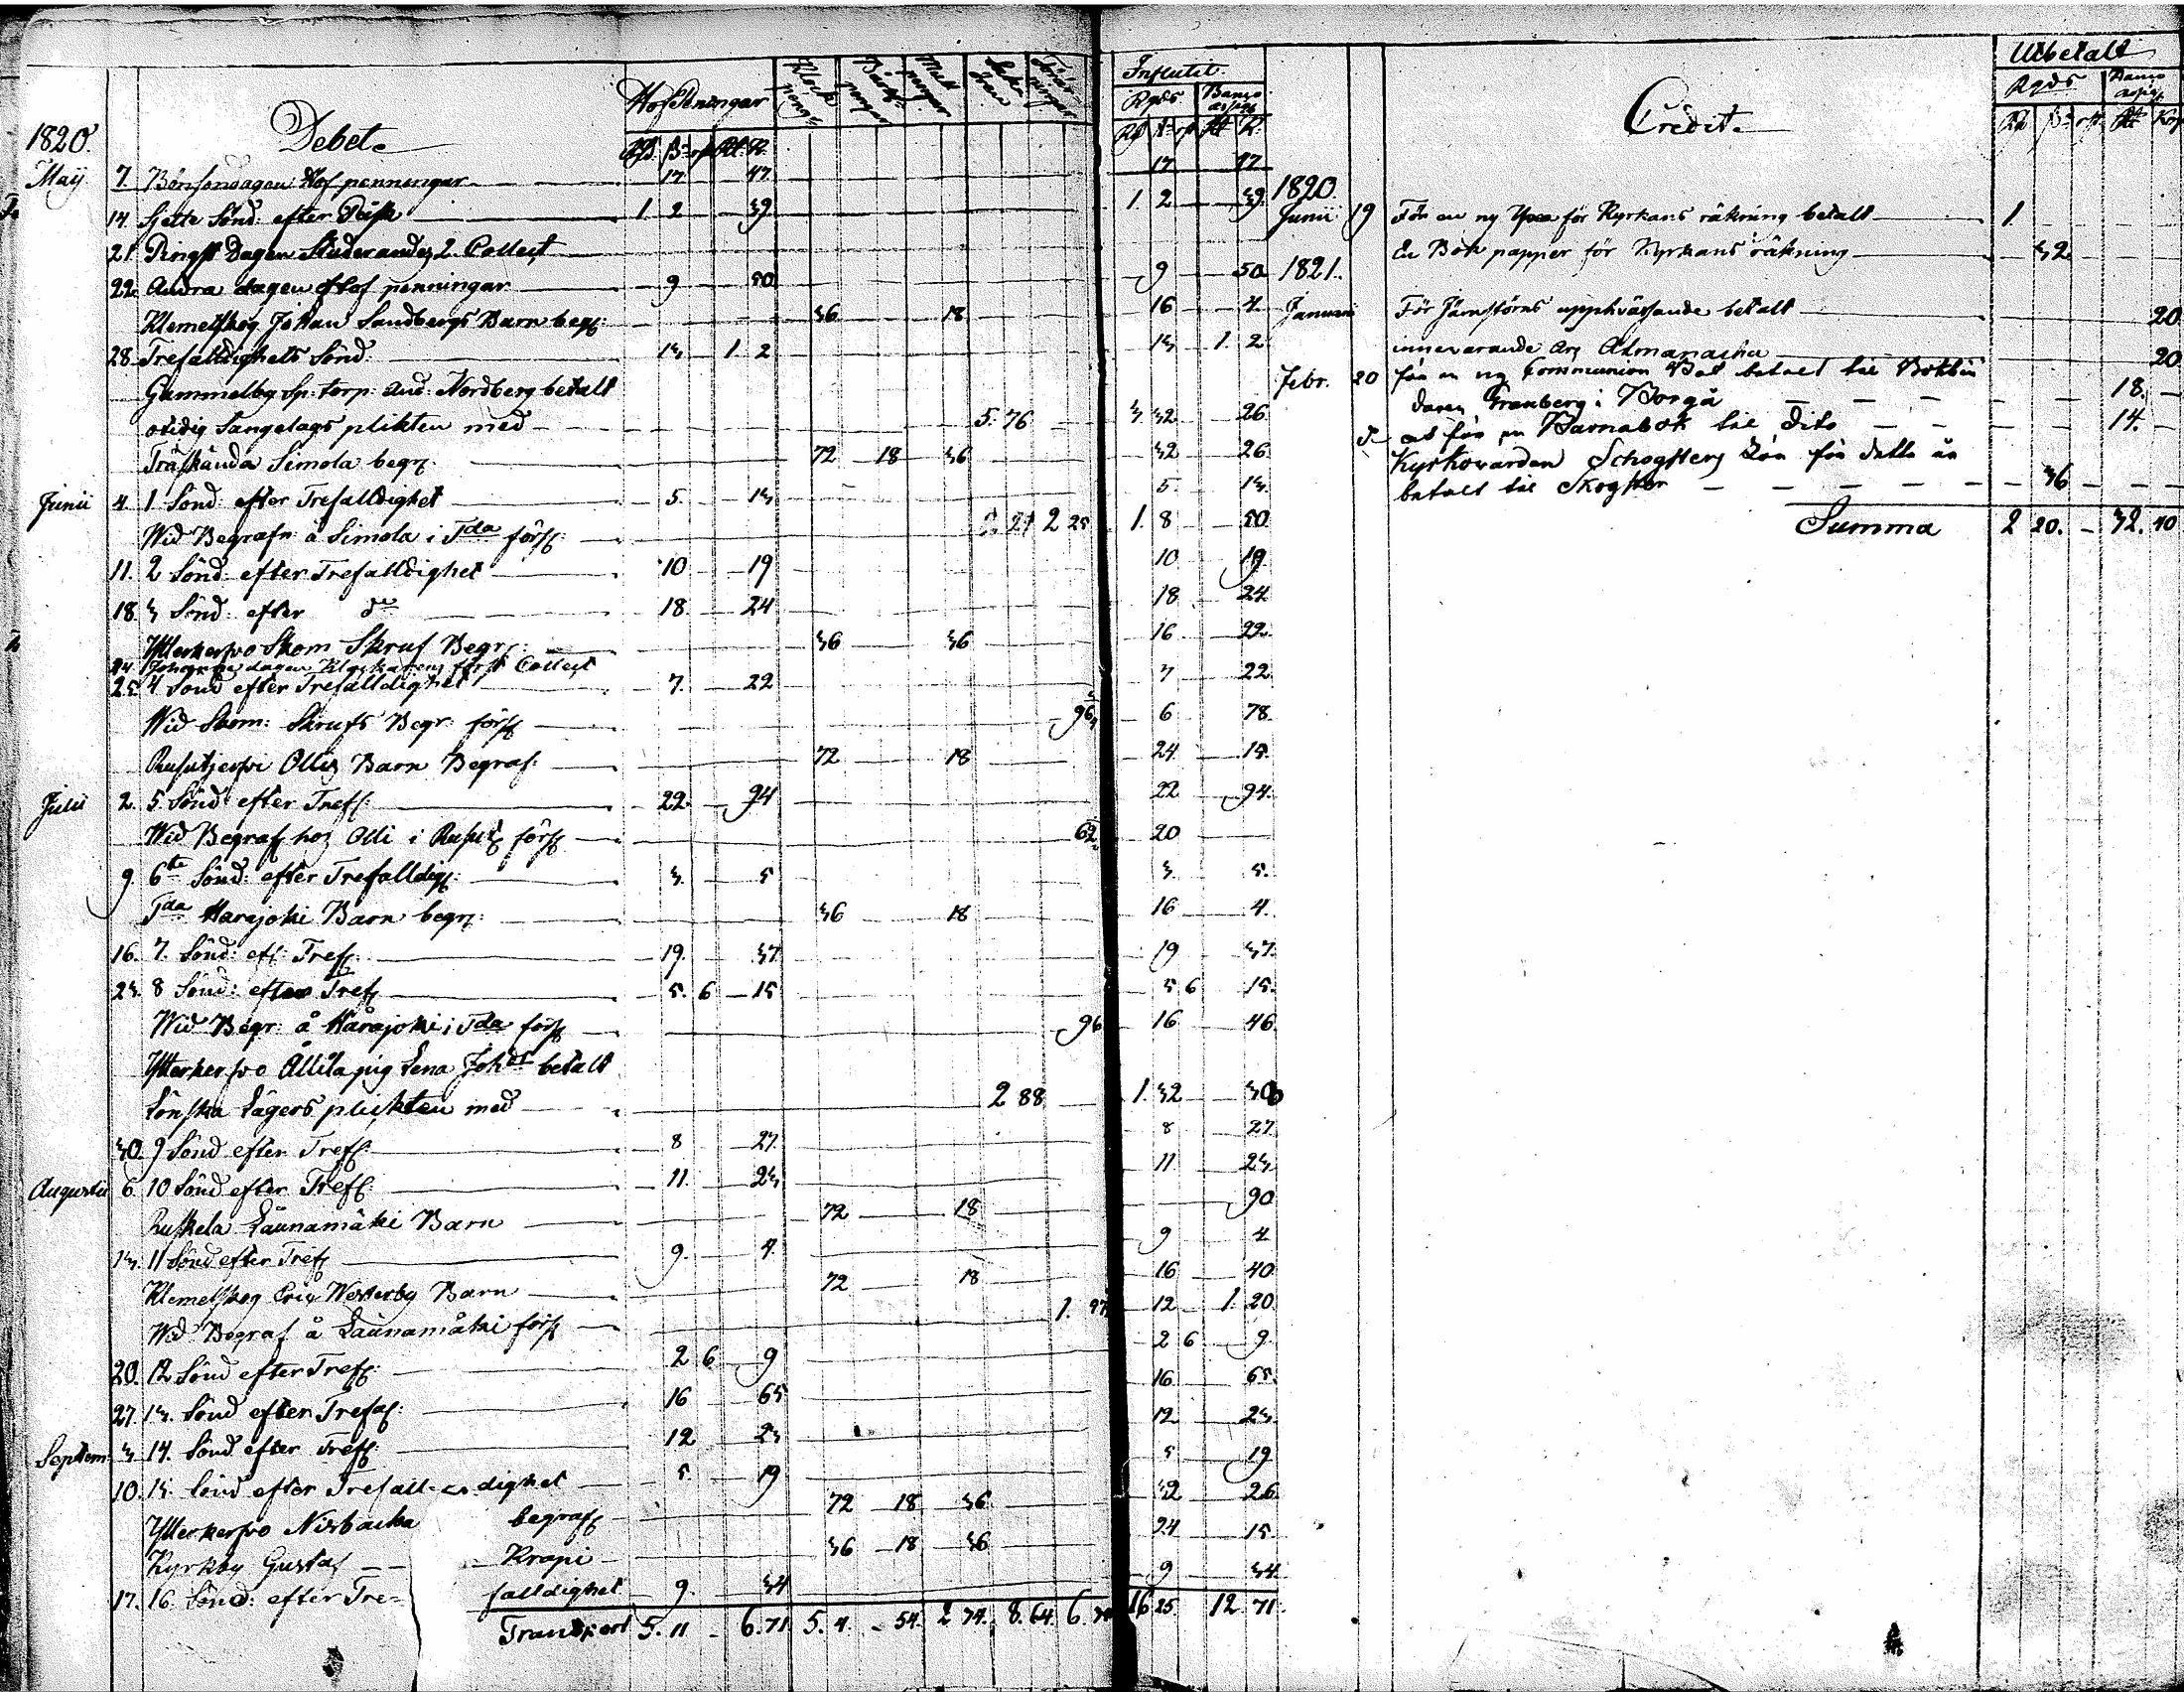 Håfpenningar Klock peng: Bårtz: pengar Mull pengar Sakören Föräringar
1820. Debet. Rd ß rst Rbl: K:
Maij 7. Bönsöndagen Håf penningar 17 47.
14. Sjette Sönd: efter Påsk 1. 2 39
21 Pingst Dagen Studerandes 2. Collect
22 Andra dagen Håf penningar 9 50
Klemetskog Johan Sandbergs Barn begr: 36 18
28 Trefalldighets Sönd: 13 1. 2
Gammelby Sp: torp: And: Nordberg betalt
otidig Sängelags plikten med 5. 76
Träskända Simola begr: 72 18 36
Junii 4. 1 Sönd: efter Trefalldighet 5. 13
Wid Begrafn: å Simola i Tda förs: 2 21 2 25
11. 2 Sönd: efter Trefalldighet 10 19
18. 3 Sönd: efter do 18. 24
Ytterkervo Skom Skruf Begr: 36 36
24 dagen Klockarens först Collect
25 4 Sönd efter Trefalldighet 7. 22
Wid Skom: Skrufs Begr: förs: 96
Rusutjervi Ollis Barn Begraf: 72 18
Julii 2. 5. Sönd: efter Tref: 22. 94
Wid Begraf hos Olli i Rusutj: förs: 62
9. 6te Sönd: efter Trefalldig: 3. 5
Tda Harajoki Barn begr: 36 18
16. 7. Sönd: eft: Tref: 19. 37
23. 8 Sönd: efter Tref 5. 6 15
Wid Begr: å Harajoki i Tda förs: 96
Ytterkervo Allila pig Lena Joh:dr betalt
Lönska Lägers plikten med 2 88
30. 9 Sönd efter Tref: 8 27.
Augustii 6. 10 Sönd efter Tref: 11. 23
Ruskela Launamäki Barn 72 18
13. 11 Sönd efter Tref 9. 4.
Klemetskog Eric Westerby Barn 72 18
Wid Begraf å Launamäki förs 1. 97
20. 12 Sönd efter Tref: 2 6 9
27. 13. Sönd efter Tref: 16 65
Septem: 3 14. Sönd efter Tref: 12 23
10. 15. Sönd efter Trefall-dighet 5. 19
Ytterkervo Nisbacka begraf: 72 18 36
Kyrkby Gustaf Krapi 36 18 36
17. 16. Sönd: efter Tre=falldighet 9. 34
Transport 5. 11 6. 71 5. 4. 54. 2 74. 8. 64. 6.
Influtit.
Rgds. Banco assig:
Rd ß rst Rl K.
17 47
1. 2 39
9 50
16 4.
13 1. 2
3 32 26
32 26
5. 13.
1. 8 50
10 19
18 24
16 22
7 22
6 78
24 15.
22 94.
20
3 5.
16 4.
19 37.
5 6 15.
16 46
1. 32 30
8 27
11 23
90
9 4
16 40
12 1. 20
2 6 9.
16 65.
12 23.
5 19
32 26
24 15
9 34
16 25 12 71.
Credit. Utbetalt
Rgds Banco assig:
Rd ß rst Rbl Kop
1820
Junii 19 För en ny för Kyrkans räkning betalt 1.
En Bok papper för Kyrkans räkning 32
1821.
Januarii För Järnstörns upphvässande betalt 20
innevarande års Almanacka 20
Febr. 20 för en ny Communion Bok betalt til Bokbin
daren Granberg i Borgå 18.
do at för en Barnabok til dito 14.
Kyrkovärden Schogsters Lön för detta år
betalt til Skogster 36
Summa 2 20. 32. 40